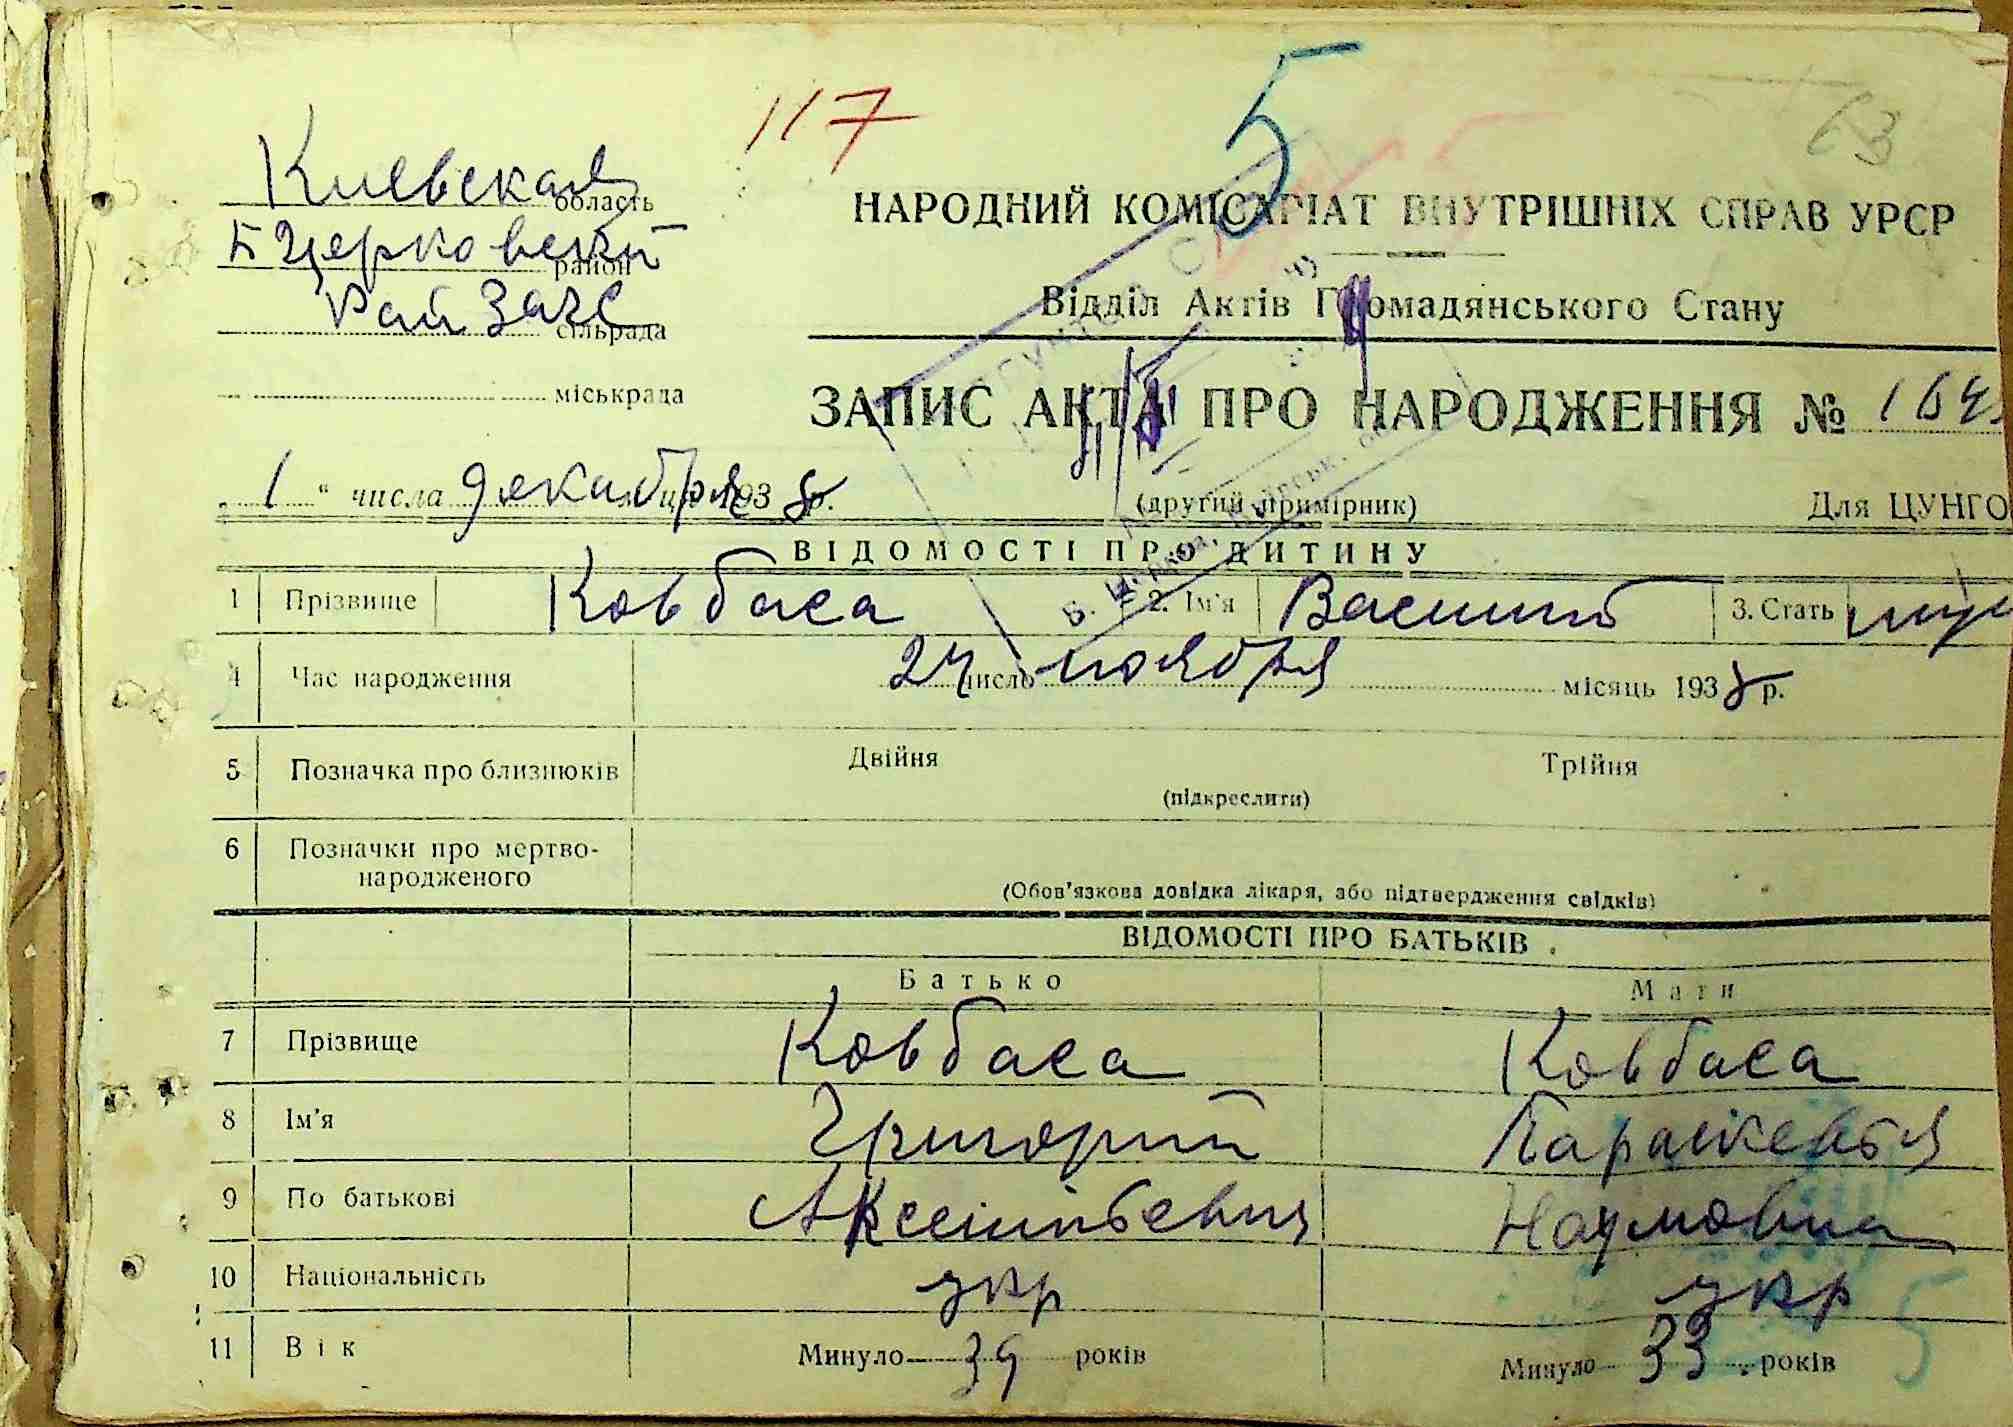 117
5
63
Киевская область
Б Церковский район
Рай Загс сільрада
міськрада
НАРОДНИЙ КОМІСАРІАТ ВНУТРІШНІХ СПРАВ УРСР
Відділ Актів Громадянського Стану
ЗАПИС АКТА ПРО НАРОДЖЕННЯ №
„ 1 " числа декабря 1938 р.
(другий примірник)
Для ЦУНГО
ВІДОМОСТІ ПРО ДИТИНУ
1 Прізвище Ковбаса 2. Ім'я Василий 3. Стать муж
4 Час народження число ноября місяць 1938 р.
5 Позначка про близнюків Двійня Трійня
(підкреслити)
6 Позначки про мертво-
народженого
(Обов'язкова довідка лікаря, або підтвердження свідків)
ВІДОМОСТІ ПРО БАТЬКІВ
Батько Мати
7 Прізвище Ковбаса Ковбаса
8 Ім'я Григорий Параскевья
9 По батькові Наумовна
10 Національність укр укр
11 Вік Минуло 39 років Минуло 33 років
5